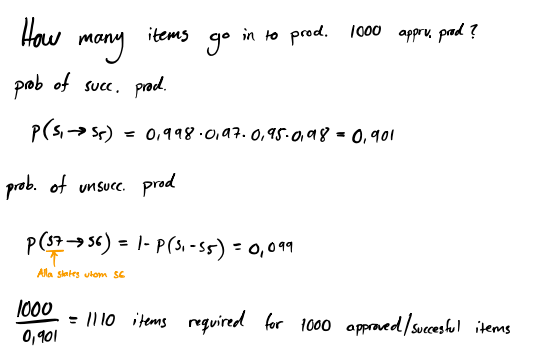 How many items go in to prod. 1000 apprv. prod?
prob of succ. prod.
P(S₁→S₅) = 0,998·0,97·0,95·0,98 = 0,901
prob. of unsucc. prod
P(S7→S6) = 1- P(S₁-S₅) = 0,099
Alla states utom S6
1000
0,901
= 1110 items required for 1000 approved/succesful items